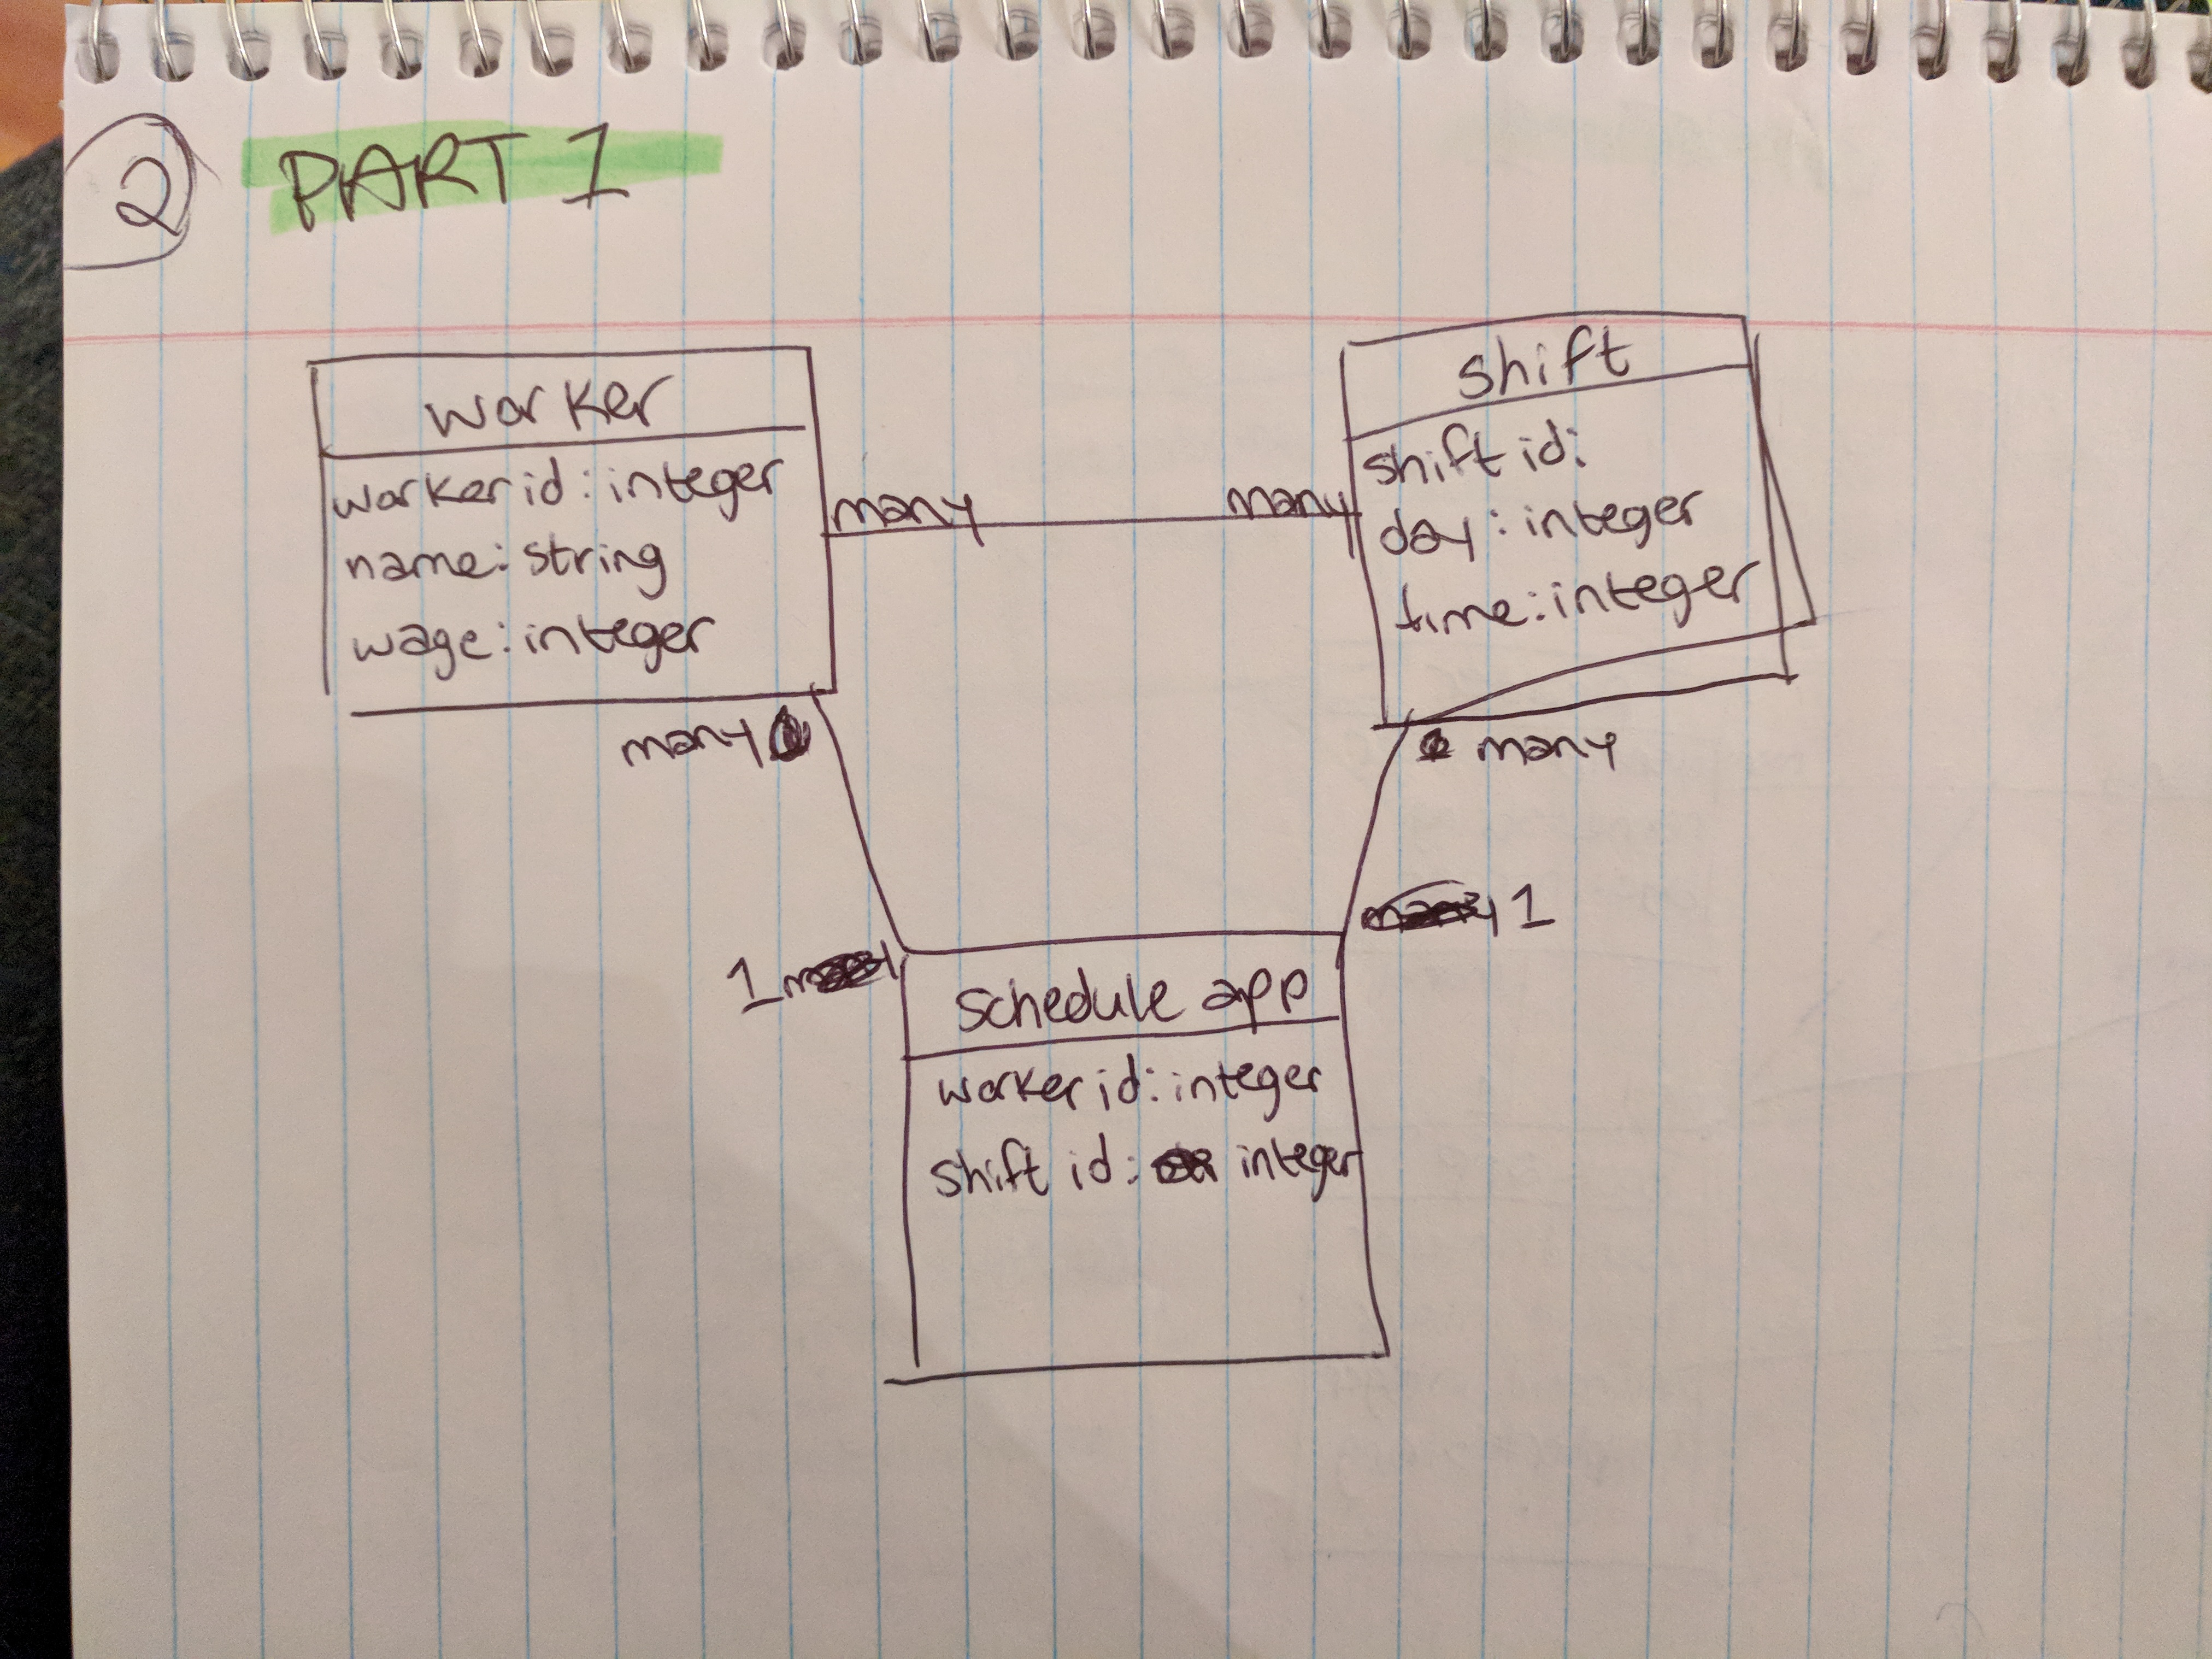 2
PART 1
worker
worker id: integer
name: string
wage: integer
many
many
shift
shift id:
day: integer
time: integer
many
many
1
1
schedule app
worker id: integer
shift id: integer